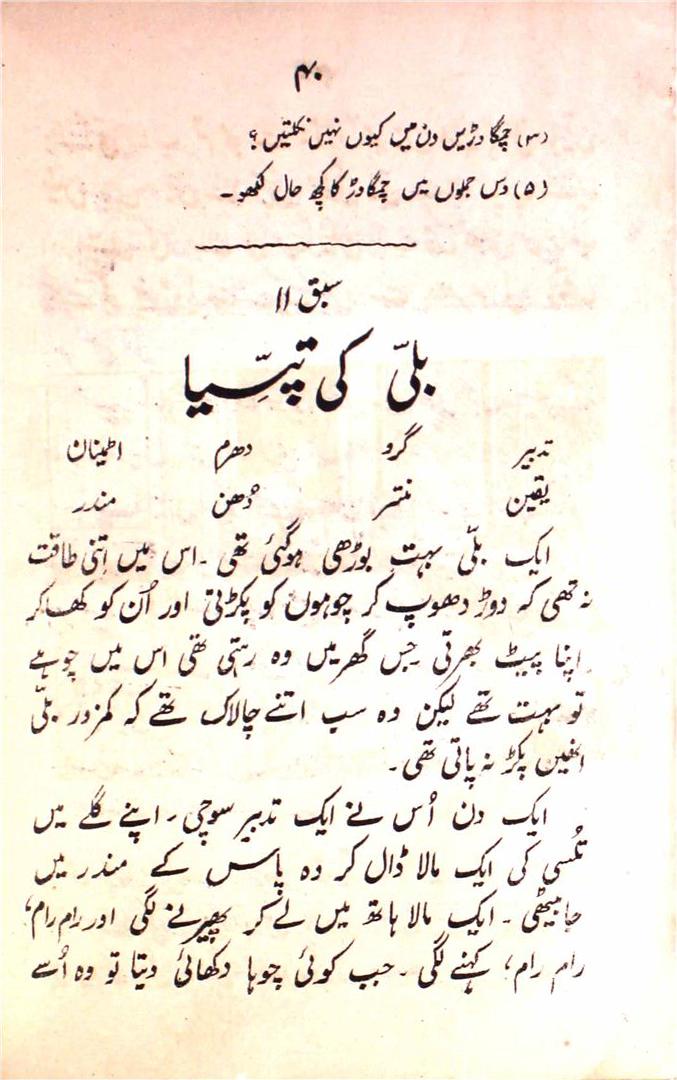 ۴۰
(۴) چمگادڑیں دن میں کیوں نہیں نکلتیں؟
(۵) دس جملوں میں چمگادڑ کا کچھ حال لکھو۔
سبق ۱۱
بلّی کی تپسّیا
تدبیر گرو دھرم اطمینان
یقین منتر دُھن مندر
ایک بلّی بہت بوڑھی ہوگئی تھی۔ اس میں اِتنی طاقت
نہ تھی کہ دوڑ دھوپ کر چوہوں کو پکڑتی اور اُن کو کھا کر
اپنا پیٹ بھرتی جس گھر میں وہ رہتی تھی اس میں چوہے
تو بہت تھے لیکن وہ سب اتنے چالاک تھے کہ کمزور بلّی
انھیں پکڑ نہ پاتی تھی۔
ایک دن اُس نے ایک تدبیر سوچی۔ اپنے گلے میں
تُلسی کی ایک مالا ڈال کر وہ پاس کے مندر میں
جا بیٹھی۔ ایک مالا ہاتھ میں لے کر پھیرنے لگی اور رام رام،
رام رام، کہنے لگی۔ جب کوئی چوہا دکھائی دیتا تو وہ اُسے